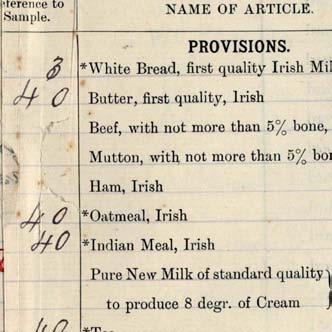 eference to
Sample.
NAME OF ARTICLE.
PROVISIONS.
3 *White Bread, first quality Irish Mil
40 Butter, first quality, Irish
Beef, with not more than 5% bone,
Mutton, with not more than 5% bon
Ham, Irish
40 *Oatmeal, Irish
40 *Indian Meal, Irish
Pure New Milk of standard quality
to produce 8 degr. of Cream
40 *Tea